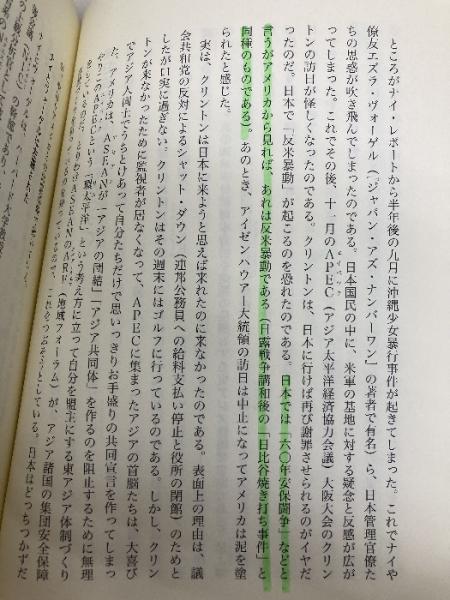 ところがナイ・レポートから半年後の九月に沖縄少女暴行事件が起きてしまった。これでナイや
僚友エズラ・ヴォーゲル(『ジャパン・アズ・ナンバーワン』の著者で有名)ら、日本管理官僚た
ちの思惑が吹き飛んでしまったのである。日本国民の中に、米軍の基地に対する疑念と反感が広が
ってしまった。これでその後、十一月のAPEC(アジア太平洋経済協力会議)大阪大会のクリン
トンの訪日が怪しくなったのである。クリントンは、日本に行けば再び謝罪させられるのがイヤだ
ったのだ。日本で「反米暴動」が起こるのを恐れたのである。日本では「六〇年安保闘争」などと
言うがアメリカから見れば、あれは反米暴動である(日露戦争講和後の「日比谷焼き打ち事件」と
同種のものである)。あのとき、アイゼンハウアー大統領の訪日は中止になってアメリカは泥を塗
られたと感じた。
実は、クリントンは日本に来ようと思えば来れたのに来なかったのである。表面上の理由は、議
会共和党の反対によるシャット・ダウン(連邦公務員への給料支払い停止と役所の閉館)のためと
したが口実に過ぎない。クリントンはその週末にはゴルフに行っているのである。しかし、クリン
トンが来なかったために監視者が居なくなって、APECに集まったアジアの首脳たちは、大喜び
でアジア人同士でうちとけあって自分たちだけで思いっきりお手盛りの共同宣言を作ってしまっ
た。アメリカは、ASEANの「アジアの団結」「アジア共同体」を作るのを阻止するために無理
やりこのAPECという「環太平洋」という考え方に立って自分を盟主にする東アジア体制づくり
をしているのだ。とりわけASEANのARF(地域フォーラム)が、アジア諸国の集団安全保障
これをつぶそうとしている。日本はどっちつかずだ